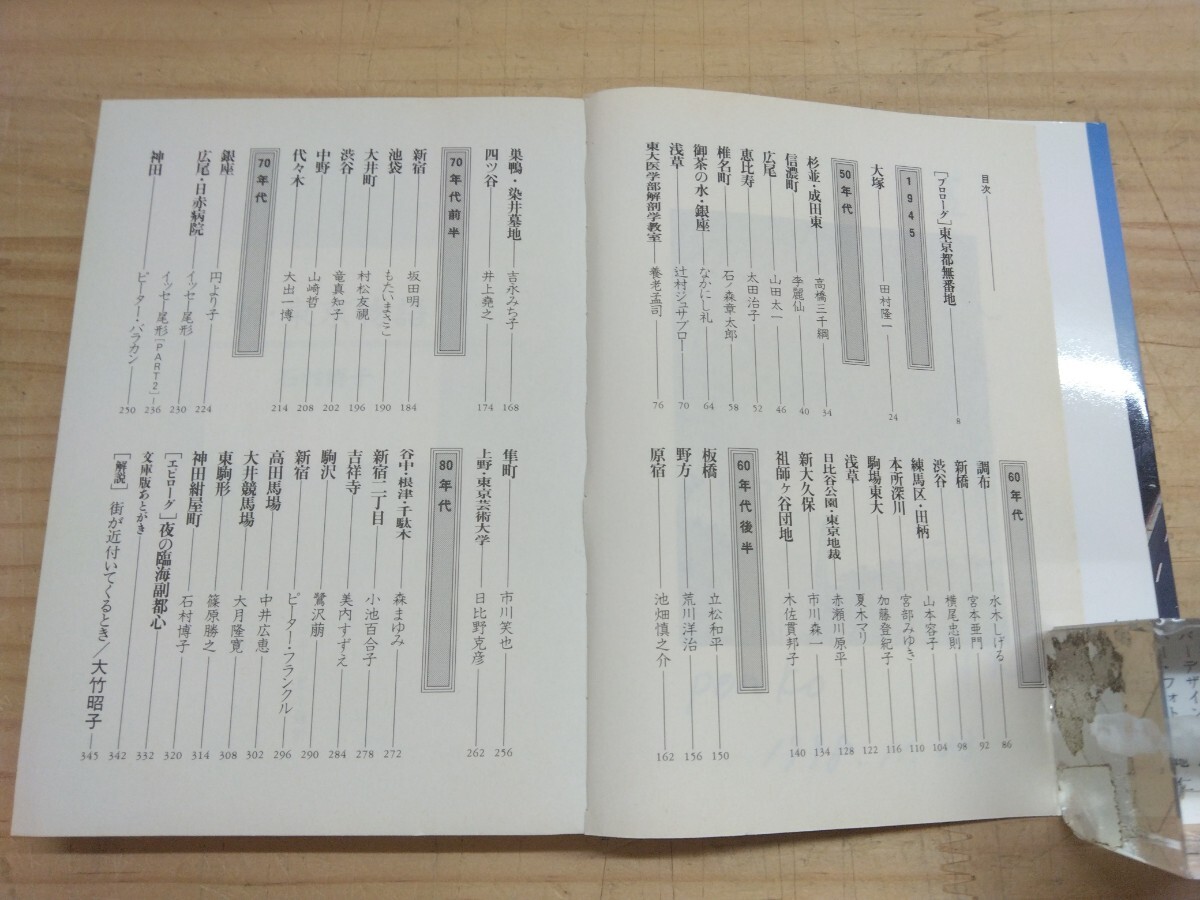 目次
[プロローグ]東京都無番地 8
1945
大塚 田村隆一 24
50年代
杉並・成田東 高橋三千綱 34
信濃町 李麗仙 40
広尾 山田太一 46
恵比寿 太田治子 52
椎名町 石ノ森章太郎 58
御茶の水・銀座 なかにし礼 64
浅草 辻村ジュサブロー 70
東大医学部解剖学教室 養老孟司 76
60年代
調布 水木しげる 86
新橋 宮本亜門 92
渋谷 横尾忠則 98
練馬区・田柄 山本容子 104
本所深川 宮部みゆき 110
駒場東大 加藤登紀子 116
浅草 夏木マリ 122
日比谷公園・東京地裁 赤瀬川原平 128
新大久保 市川森一 134
祖師ヶ谷団地 木佐貫邦子 140
60年代後半
板橋 立松和平 150
野方 荒川洋治 156
原宿 池畑慎之介 162
巣鴨・染井墓地 吉永みち子 168
四ツ谷 井上堯之 174
70年代前半
新宿 坂田明 184
池袋 もたいまさこ 190
大井町 村松友視 196
渋谷 竜真知子 202
中野 山崎哲 208
代々木 大出一博 214
70年代
銀座 円より子 224
広尾・日赤病院 イッセー尾形 230
イッセー尾形[PART2] 236
神田 ピーター・バラカン 250
隼町 市川笑也 256
上野・東京芸術大学 日比野克彦 262
80年代
谷中・根津・千駄木 森まゆみ 272
新宿二丁目 小池百合子 278
吉祥寺 美内すずえ 284
駒沢 鷺沢萠 290
新宿 ピーター・フランクル 296
高田馬場 中井広恵 302
大井競馬場 大月隆寛 308
東駒形 篠原勝之 314
神田紺屋町 石村博子 320
[エピローグ]夜の臨海副都心 332
文庫版あとがき 342
[解説] 街が近付いてくるとき/大竹昭子 345